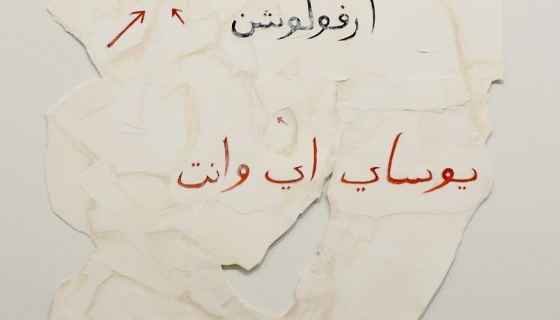 ارفولوشن
يوساي اي وانت